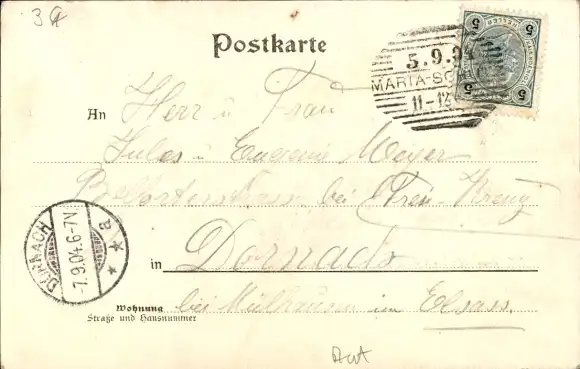 3
Postkarte
5.9.
MARIA-SC
11-12
5 HELLER 5
5 5
An Herr u Frau
Jules u Eugenie Meyer
Belforterstrasse bei Kreuz
in Dornach
DORNACH
7.9.04.6-7N
a
Wohnung
bei Mülhausen im Elsass.
Straße und Hausnummer